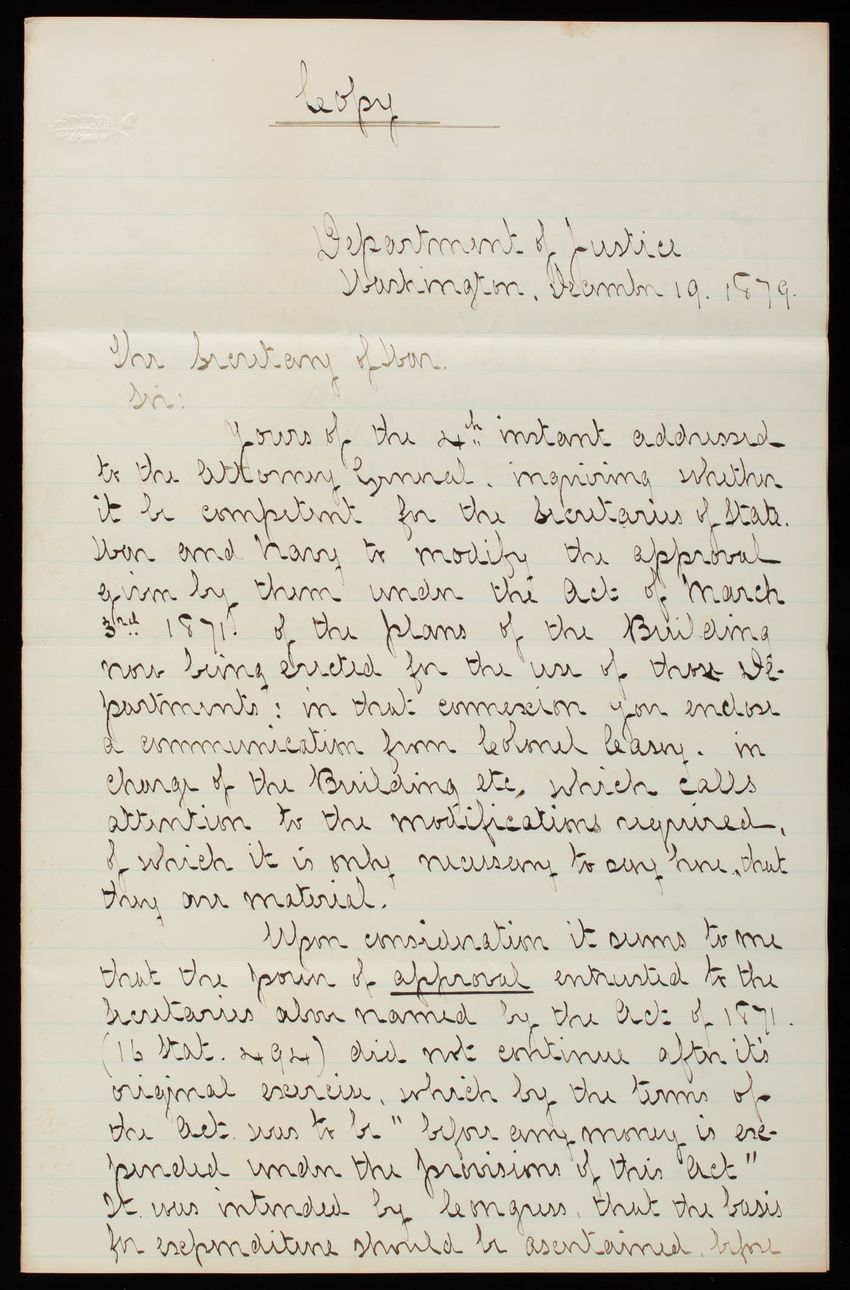 Copy
Department of Justice
Washington, December 19. 1879.
The Secretary of War.
Sir:
Yours of the 4th instant addressed
to the Attorney General, inquiring whether
it be competent for the Secretaries of State,
War and Navy to modify the approval
given by them under the Act of March
3rd 1871, of the plans of the Building
now being erected for the use of those De-
partments; in that connexion you enclose
a communication from Colonel Casey, in
charge of the Building etc, which calls
attention to the modifications required,
of which it is only necessary to say here, that
they are material.
Upon consideration it seems to me
that the power of approval entrusted to the
Secretaries above named by the Act of 1871.
(16 Stat. 494) did not continue after it's
original exercise, which by the terms of
the Act was to be "before any money is ex-
pended under the provisions of this Act"
It was intended by Congress, that the basis
for expenditure should be ascertained, before